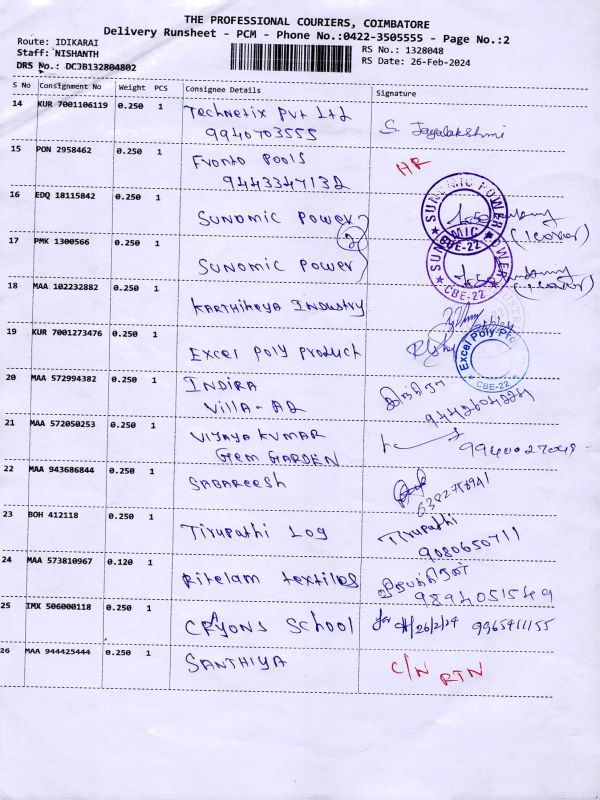 THE PROFESSIONAL COURIERS, COIMBATORE
Delivery Runsheet - PCM - Phone No.:0422-3505555 - Page No.:2
Route: IDIKARAI
Staff: NISHANTH
DRS No.: DCJB132804802
RS No.: 1328048
RS Date: 26-Feb-2024
S No Consignment No Weight PCS Consignee Details Signature
14 KUR 7001106119 0.250 1 Technetix Pvt Ltd S. Jayalakshmi
9940703555
15 PON 2958462 0.250 1 Fronto Pools HR
9443347132
16 EDQ 18115842 0.250 1 SUNOMIC POWER
(1 cover)
2
17 PMK 1300566 0.250 1 SUNOMIC POWER
SUNOMIC POWER
CBE-22
CBE-22
18 MAA 102232882 0.250 1 KARTHIKEYA INDUSTRY
19 KUR 7001273476 0.250 1 EXCEL POLY PRODUCT
Excel Poly
CBE-22
20 MAA 572994382 0.250 1 INDIRA இந்திரா
VILLA-A2 9442604224
21 MAA 572050253 0.250 1 VIJAYA KUMAR
GEM GARDEN
22 MAA 943686844 0.250 1 SABAREESH
23 BOH 412118 0.250 1 Tirupathi Log Tirupathi
9080650711
24 MAA 573810967 0.120 1 Ritelam textiles
9894051549
25 IMX 506000118 0.250 1 CRAYONS School 26/2/24 9965411155
26 MAA 944425444 0.250 1 SANTHIYA C/N RTN